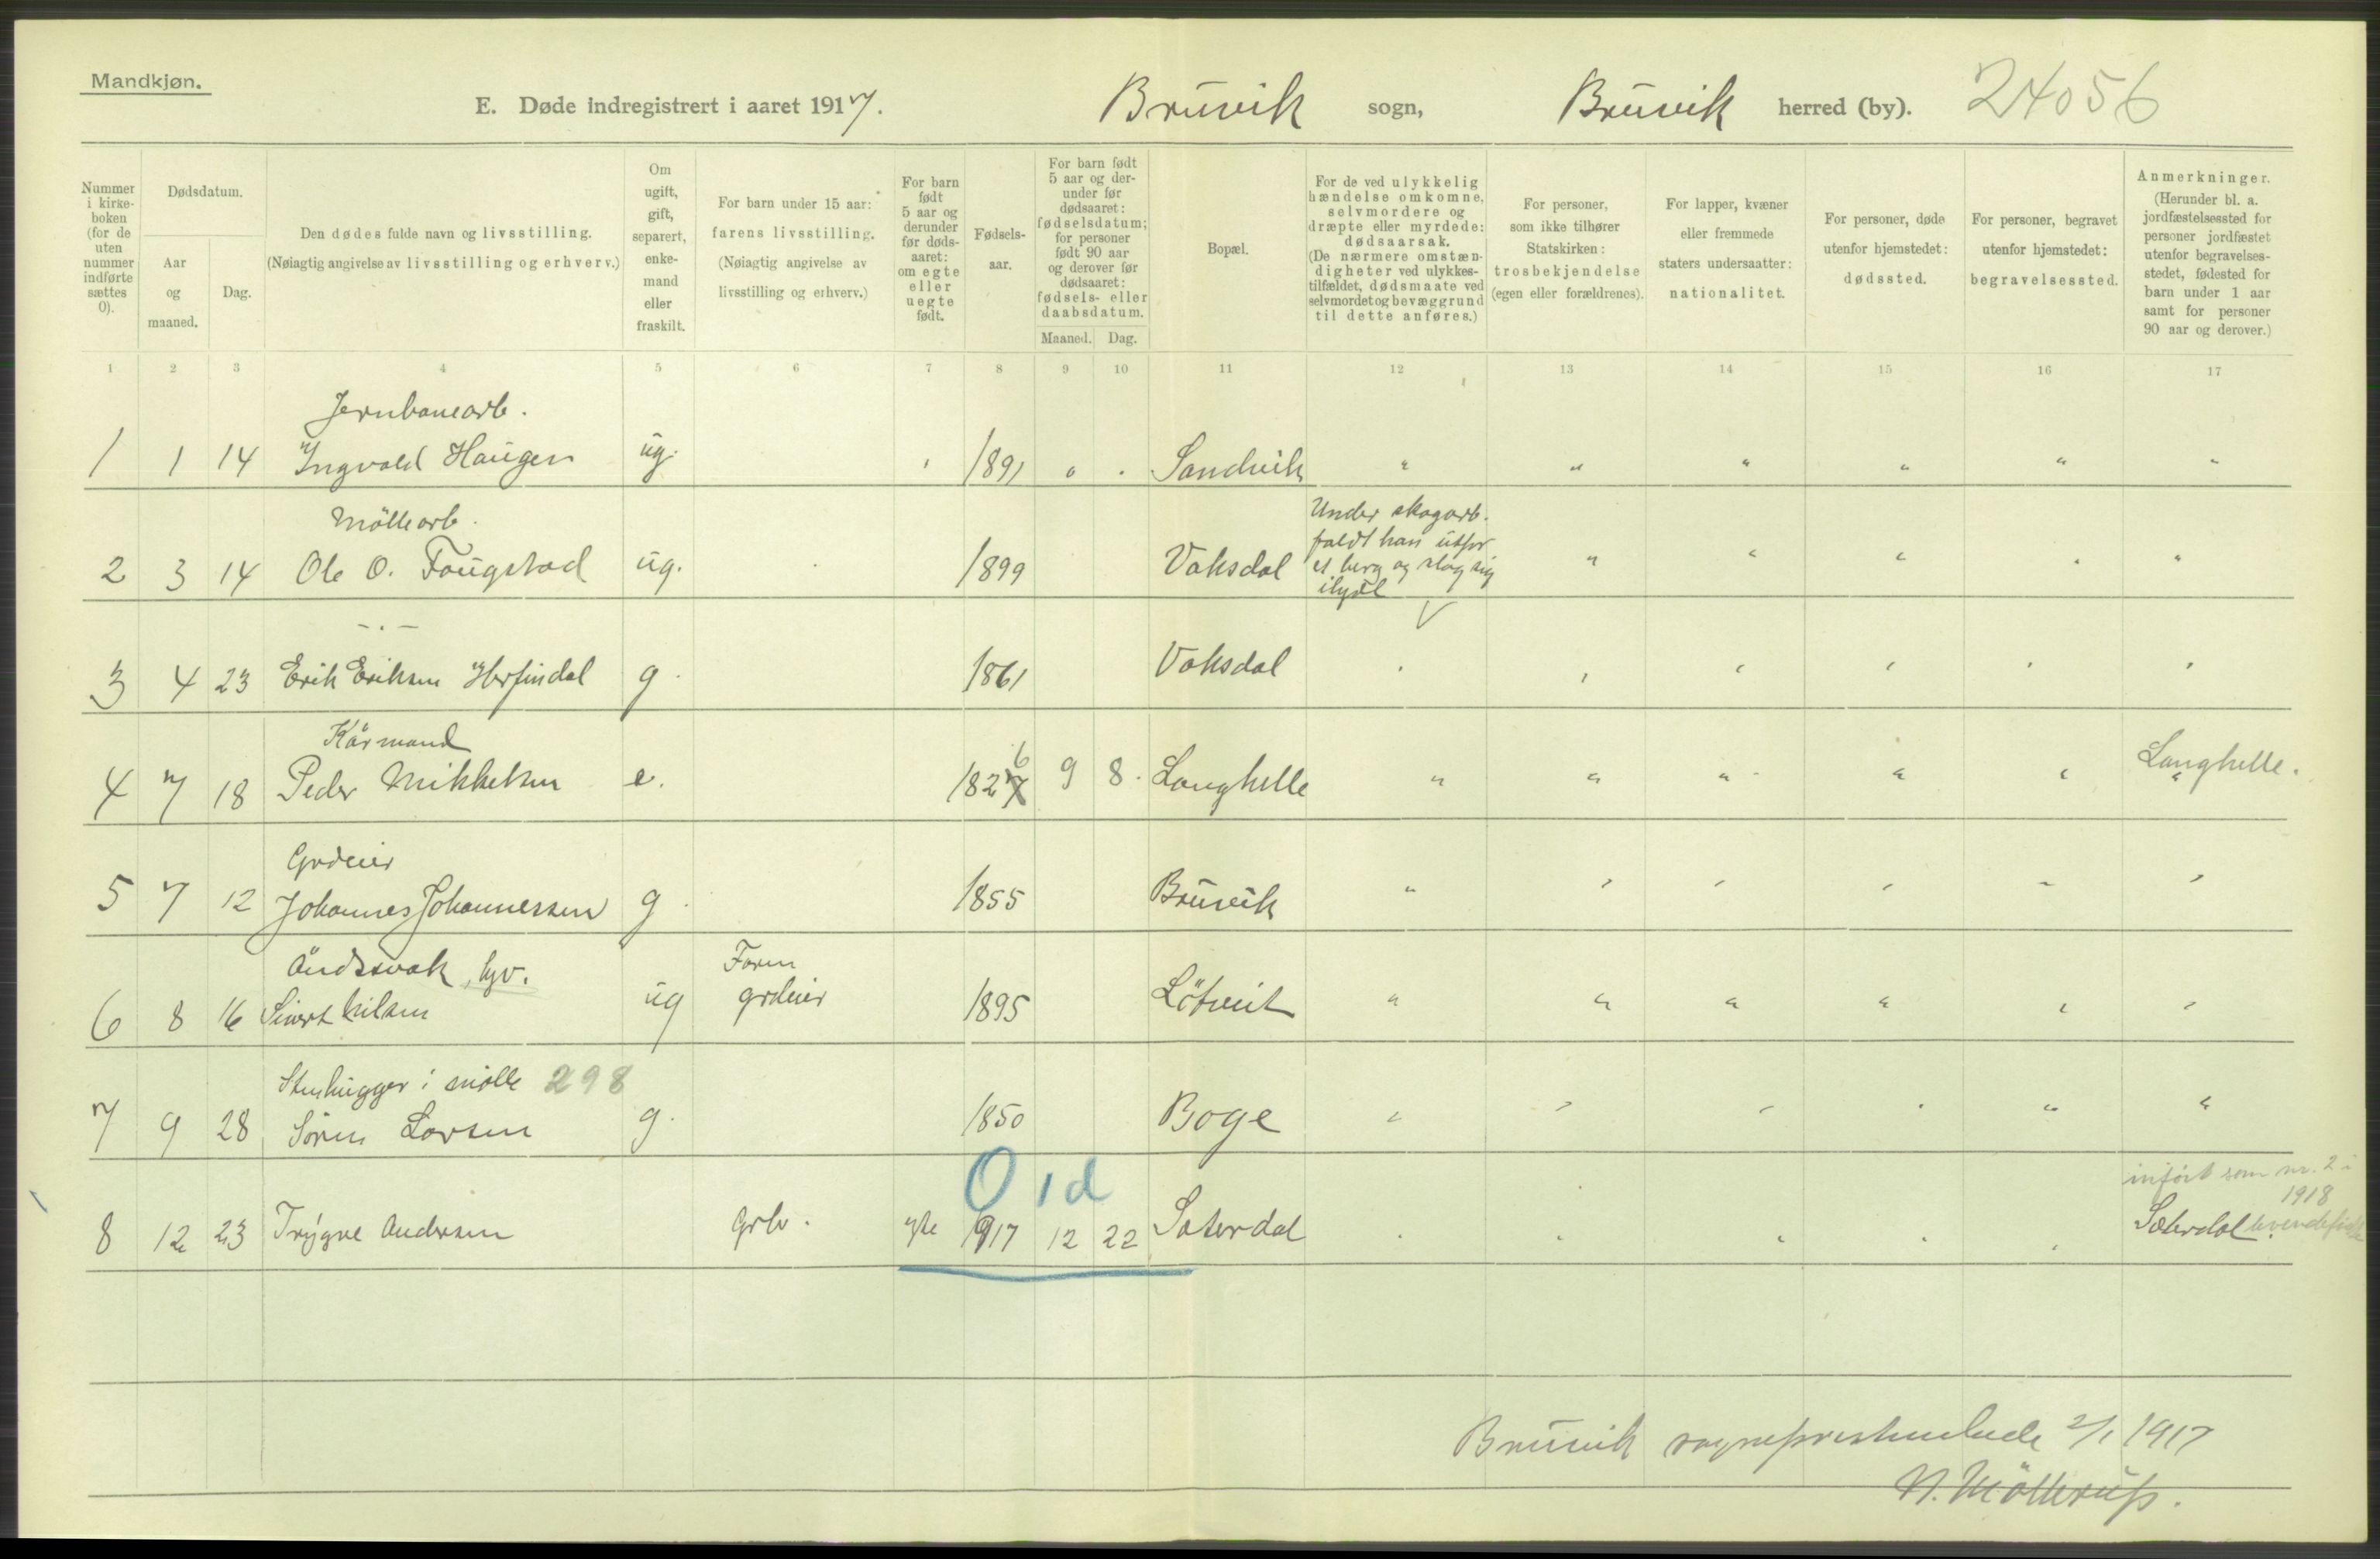 Mandkjøn.
E. Døde indregistrert i aaret 1917. Bruvik sogn, Bruvik herred (by). 24056
Nummer i kirke-boken (for de uten nummer indførte sættes 0).
Dødsdatum.
Aar og maaned.
Dag.
Den dødes fulde navn og livsstilling.
(Nøiagtig angivelse av livsstilling og erhverv.)
Om ugift, gift, separert, enke-mand eller fraskilt.
For barn under 15 aar: farens livsstilling.
(Nøiagtig angivelse av livsstilling og erhverv.)
For barn født 5 aar og derunder før døds-aaret: om egte eller uegte født.
Fødsels-aar.
For barn født 5 aar og der-under før dødsaaret: fødselsdatum; for personer født 90 aar og derover før dødsaaret: fødsels- eller daabsdatum.
Maaned. Dag.
Bopæl.
For de ved ulykkelig hændelse omkomne, selvmordere og dræpte eller myrdede: dødsaarsak.
(De nærmere omstæn-digheter ved ulykkes-tilfældet, dødsmaate ved selvmordet og bevæggrund til dette anføres.)
For personer, som ikke tilhører Statskirken: trosbekjendelse (egen eller forældrenes).
For lapper, kvæner eller fremmede staters undersaatter: nationalitet.
For personer, døde utenfor hjemstedet: dødssted.
For personer, begravet utenfor hjemstedet: begravelsessted.
Anmerkninger.
(Herunder bl. a. jordfæstelsessted for personer jordfæstet utenfor begravelses-stedet, fødested for barn under 1 aar samt for personer 90 aar og derover.)
1 2 3 4 5 6 7 8 9 10 11 12 13 14 15 16 17
Jernbanearb.
1 1 14 Ingvald Haugen ug. 1891 Sandvik " " " " " "
Möllearb.
2 3 14 Ole O. Fougstad ug. 1899 Vaksdal
Under skogarb.
faldt han utfor
et berg og slog sig
ihjel
- . -
3 4 23 Erik Eriksen Herfindal g. 1861 Vaksdal
Kårmand
4 7 18 Peder Mikkelsen e. 1827 6 9 8. Langhelle " " " " " Langhelle.
Grdeier
5 7 12 Johannes Johannessen g. 1855 Bruvik
Åndssvak, lgv. Faren
6 8 16 Sivert Nilsen ug grdeier 1895 Lötveit
Stenhugger i mölle 298
7 9 28 Sören Larsen g. 1850 Boge
0 1d
inført som nr. 2 i
1918
8 12 23 Trygve Andersen Grbr. egte 1917 12 22 Sæterdal Sæterdal
Bruvik sogneprestembede 2/1 1917
N. Möllerup.